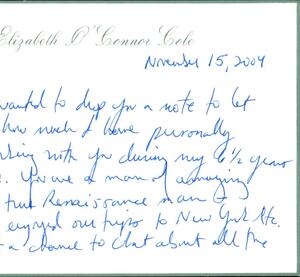 Elizabeth O'Connor Cole
November 15, 2004
wanted to drop you a note to let
how much I have personally
with you during my 6½ years
You are a man of amazing
true Renaissance man I
enjoyed our trips to New York etc.
a chance to chat about all the